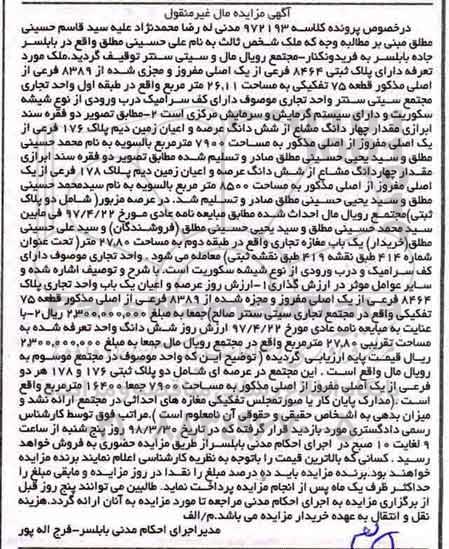 آگهی مزایده مال غیرمنقول
درخصوص پرونده کلاسه ۹۷۲۱۹۳ مدنی له رضا محمدنژاد علیه سید قاسم حسینی
مطلق مبنی بر مطالبه وجه که ملک شخص ثالث به نام علی حسینی مطلق واقع در بابلسر
جاده بابلسر به فریدونکنار-مجتمع رویال مال و سیتی سنتر توقیف گردید.ملک مورد
تعرفه دارای پلاک ثبتی ۸۴۶۴ فرعی از یک اصلی مفروز و مجزی شده از ۸۳۸۹ فرعی از
اصلی مذکور قطعه ۷۵ تفکیکی به مساحت ۲۶،۱۱ متر واقع در طبقه اول واحد تجاری
مجتمع سیتی سنتر واحد تجاری موصوف دارای کف سرامیک درب ورودی از نوع شیشه
سکوریت و دارای سیستم گرمایش و سرمایش مرکزی است ۲-مطابق تصویر دو فقره سند
ابرازی مقدار چهار دانگ مشاع از شش دانگ عرصه و اعیان زمین دیم پلاک ۱۷۶ فرعی از
یک اصلی مفروز از اصلی مذکور به مساحت ۷۹۰۰ مترمربع بالسویه به نام محمد حسینی
مطلق و سید یحیی حسینی مطلق صادر و تسلیم شده مطابق تصویر دو فقره سند ابرازی
مقدار چهاردانگ مشاع از شش دانگ عرصه و اعیان زمین دیم پلاک ۱۷۸ فرعی از یک
اصلی مفروز از اصلی مذکور به مساحت ۸۵۰۰ متر مربع بالسویه به نام سیدمحمد حسینی
مطلق و سید یحیی حسینی مطلق صادر و تسلیم شد. در عرصه مزبور( شامل دو پلاک
ثبتی)مجتمع رویال مال احداث شده مطابق مبایعه نامه عادی مورخ ۹۷/۴/۲۲ فی مابین
سید محمد حسینی مطلق و سید یحیی حسینی مطلق (فروشندگان) و سید علی حسینی
مطلق(خریدار) یک باب مغازه تجاری واقع در طبقه دوم به مساحت ۲۷،۸۰ متر( تحت عنوان
شماره ۴۱۴ طبق نقشه ۴۱۹ طبق نقشه ثبتی) معامله می شود . واحد تجاری موصوف دارای
کف سرامیک و درب ورودی از نوع شیشه سکوریت است.با شرح و توصیف اشاره شده و
سایر عوامل موثر در ارزش گذاری۱-ارزش روز عرصه و اعیان یک باب واحد تجاری پلاک
۸۴۶۴ فرعی از یک اصلی مفروز و مجزه شده از ۸۳۸۹ فرعی از اصلی مذکور قطعه ۷۵
تفکیکی واقع در مجتمع تجاری سیتی سنتر صالح)جمعا به مبلغ ۲،۳۰۰،۰۰۰،۰۰۰ ریال۲-با
عنایت به مبایعه نامه عادی مورخ ۹۷/۴/۲۲ ارزش روز شش دانگ واحد تعرفه شده به
مساحت تقریبی ۲۷،۸۰ مترمربع واقع در مجتمع رویال مال جمعا به مبلغ ۲،۳۰۰،۰۰۰،۰۰۰
ریال قیمت پایه ارزیابی گردیده ( توضیح این که واحد موصوف در مجتمع موسوم به
رویال مال واقع است . این مجتمع در عرصه ای شامل دو پلاک ثبتی ۱۷۶ و ۱۷۸ هر دو
فرعی از یک اصلی مفروز از اصلی مذکور به مساحت ۷۹۰۰ جمعا ۱۶۴۰۰ مترمربع واقع
است . (مدارک پایان کار یا صورتمجلس تفکیکی مغازه های احداثی در مجتمع ارائه نشد و
میزان بدهی به اشخاص حقیقی و حقوقی آن نامعلوم است ).مراتب فوق توسط کارشناس
رسمی دادگستری مورد بازدید قرار گرفته که در تاریخ ۹۸/۳/۳۰ روز پنج شنبه از ساعت
۹ لغایت ۱۰ صبح در اجرای احکام مدنی بابلسراز طریق مزایده حضوری به فروش خواهد
رسید . کسانی که بالاترین قیمت را باتوجه به نظریه کارشناسی اعلام نمایند برنده مزایده
خواهند بود.برنده مزایده باید ده درصد مبلغ را نقدا در روز مزایده و مابقی مبلغ را
حداکثر ظرف یک ماه پس از انجام مزایده پرداخت نماید. طالبین می توانند پنج روز قبل
از برگزاری مزایده به اجرای احکام مدنی مراجعه تا مورد مزایده به آنان ارائه گردد.هزینه
نقل و انتقال به عهده خریدار مزایده می باشد.م/الف
مدیر اجرای احکام مدنی بابلسر-فرج اله پور